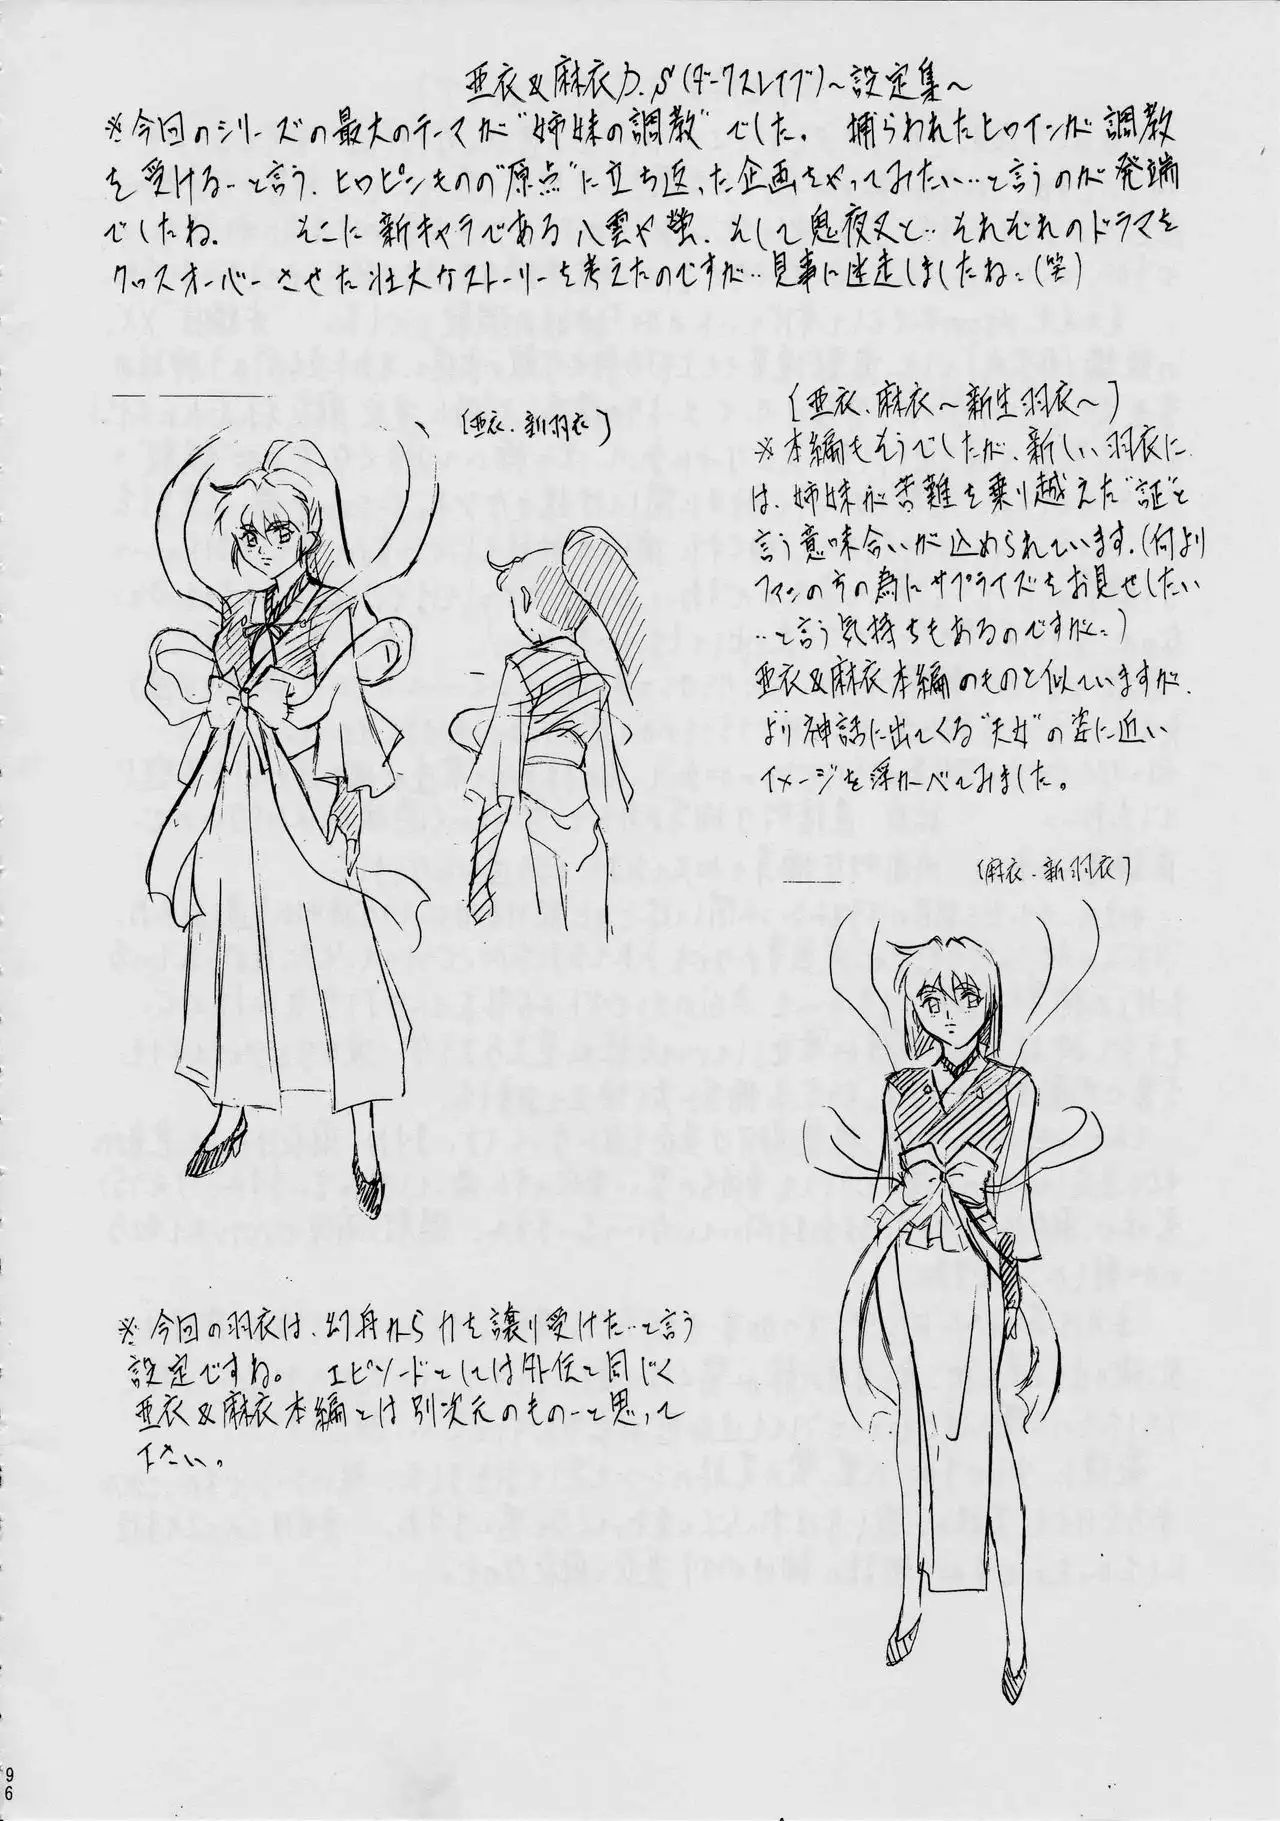 亜衣&麻衣D.S(ダークスレイブ)～設定集～
※今回のシリーズの最大のテーマが"姉妹の調教"でした。捕らわれたヒロインが調教
を受ける…と言う、ヒロピンものの"原点"に立ち返った企画をやってみたい…と言うのが発端
でしたね。そこに新キャラである八雲や蛍、そして鬼夜叉と…それぞれのドラマを
クロスオーバーさせた壮大なストーリーを考えたのですが…見事に迷走しましたね…(笑)
[亜衣・新羽衣]
[亜衣、麻衣～新生羽衣～]
※本編もそうでしたが、新しい羽衣に
は、姉妹が苦難を乗り越えた"証"と
言う意味合いが込められています。(何より
ファンの方の為にサプライズをお見せしたい
…と言う気持ちもあるのですが…)
亜衣&麻衣本編のものと似ていますが、
より神話に出てくる"天女"の姿に近い
イメージを浮かべてみました。
[麻衣・新羽衣]
※今回の羽衣は、幻舟から力を譲り受けた…と言う
設定ですね。エピソードとしては外伝と同じく
亜衣&麻衣本編とは別次元のもの…と思って
下さい。
96